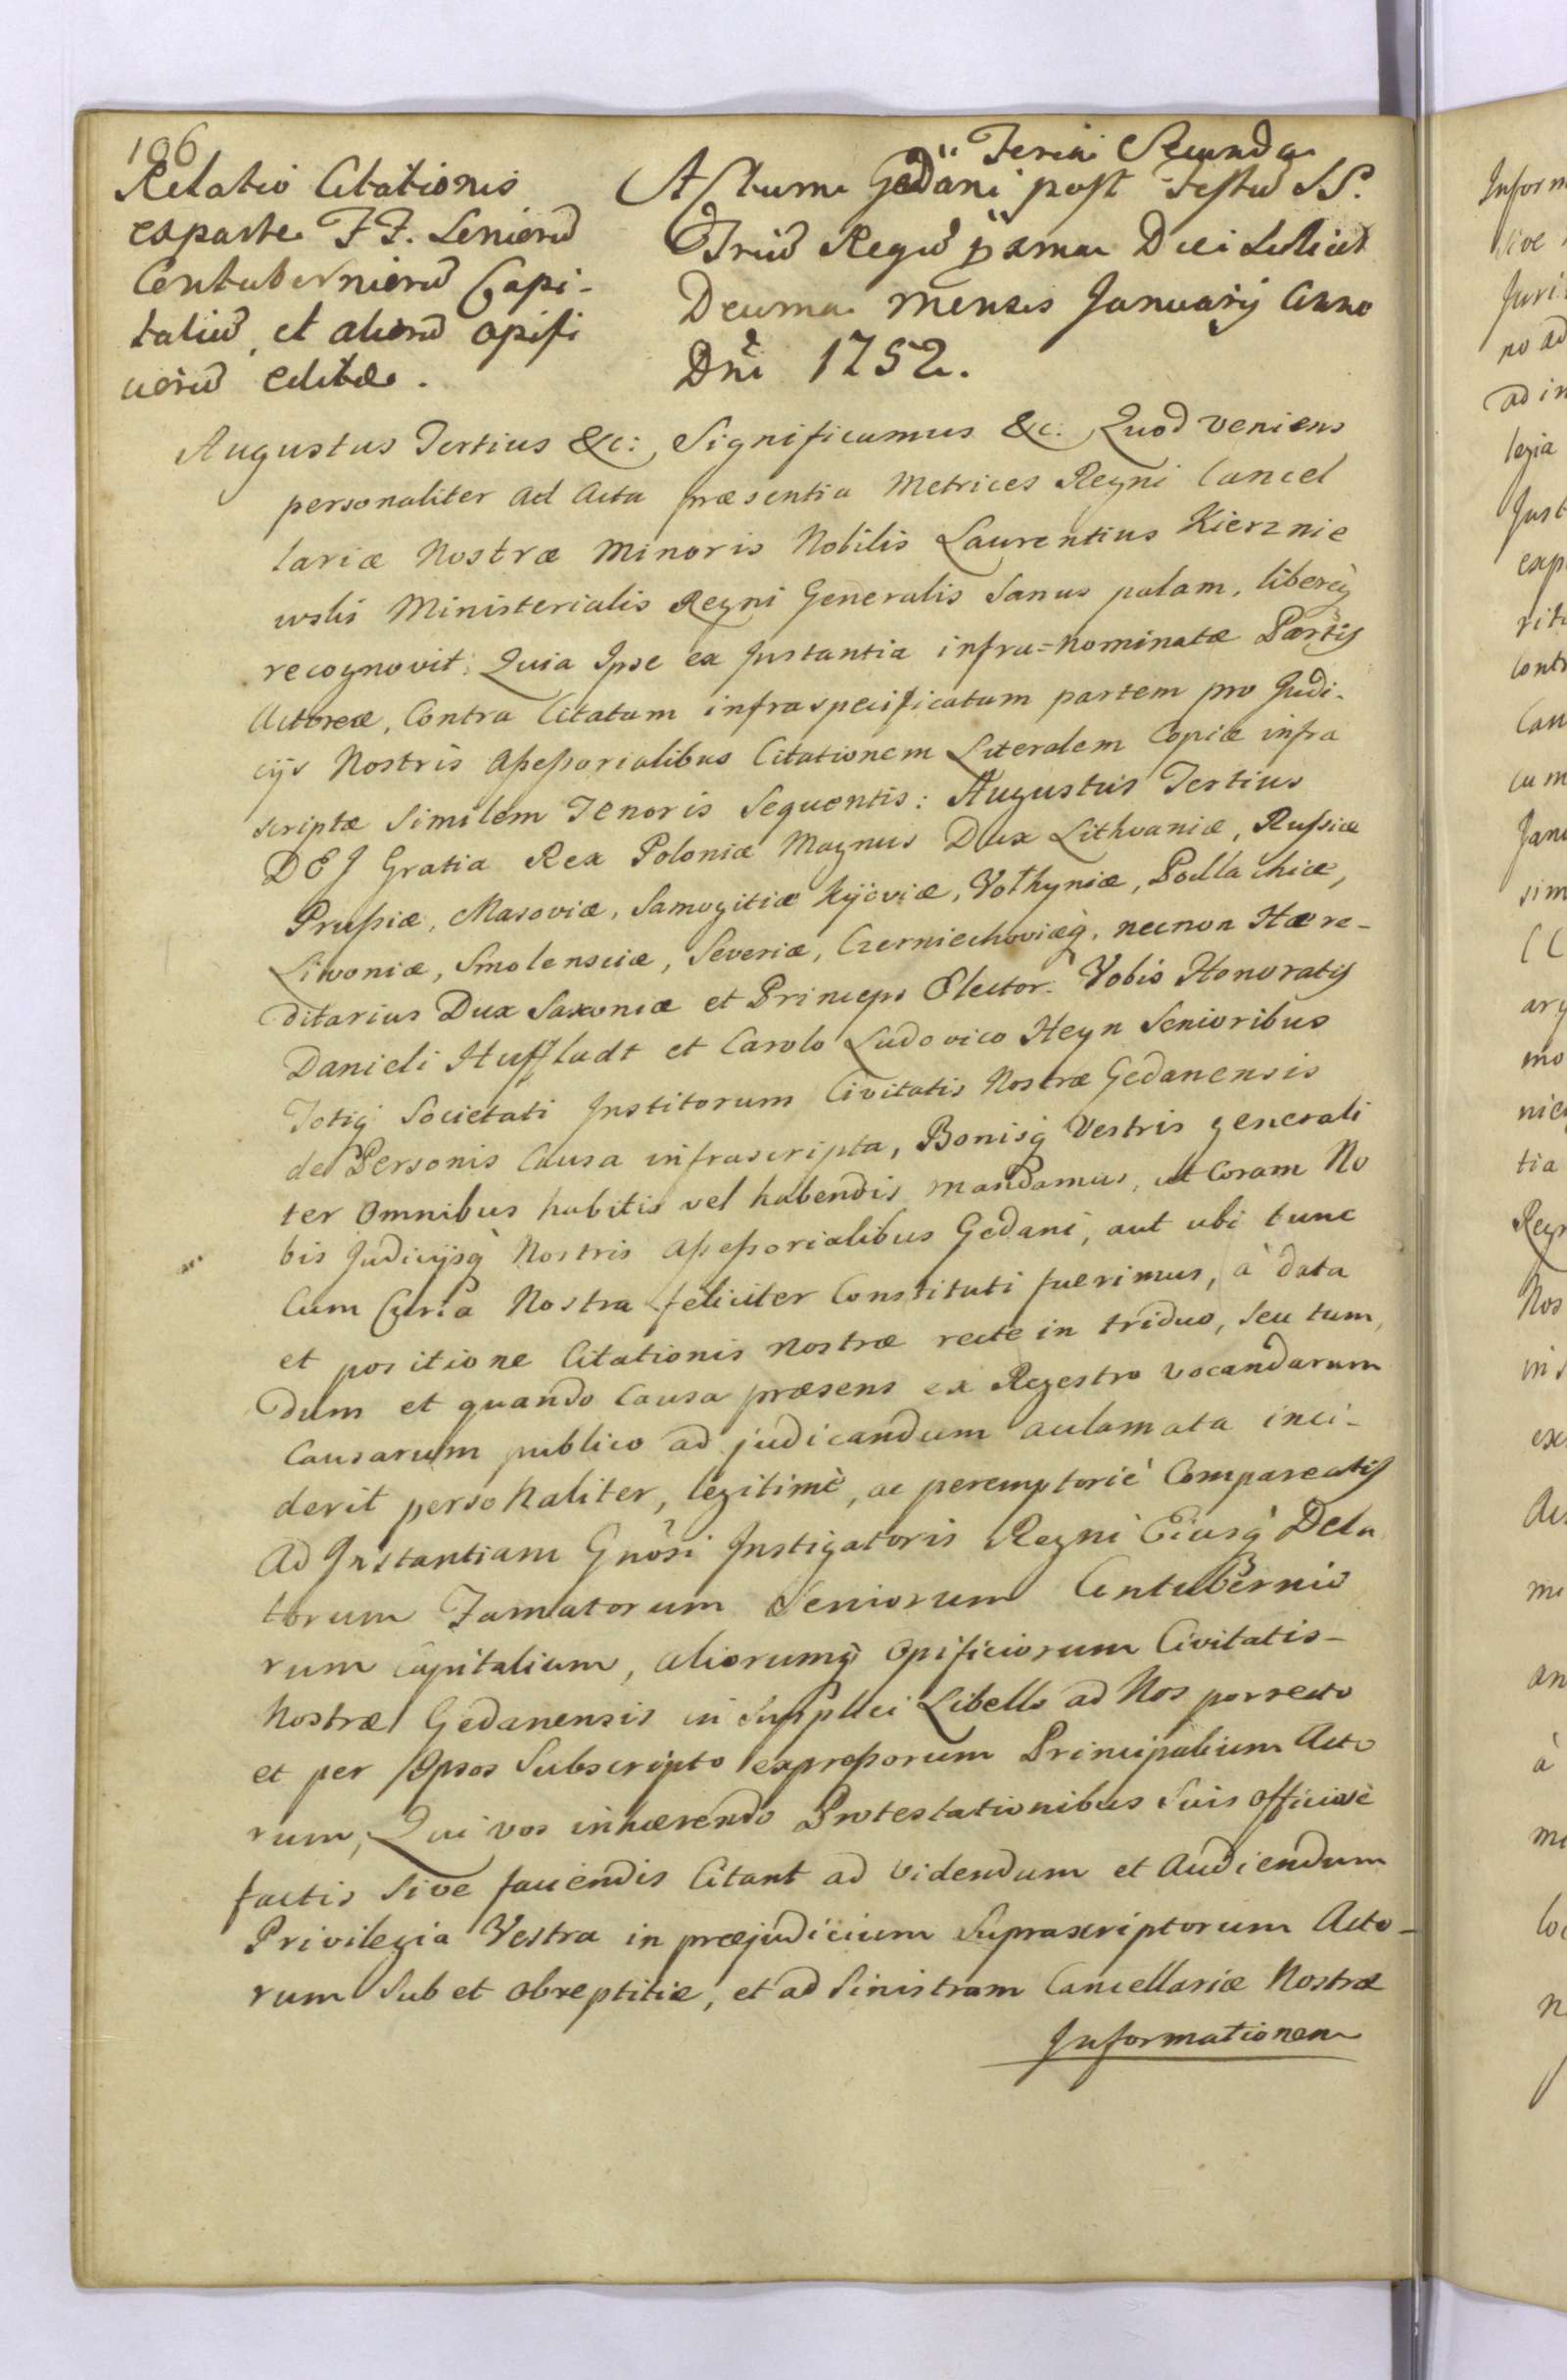 106
Relatio Citationis
ex parte F F. Seniorũ
Contuberniorũ Capi-
taliũ, et aliorũ opifi
ciorũ editæ.
Feria Secunda
Actum Gedani post Festũ SS.
Triũ Regũ pxma Die Scilicet
Decima Mensis Januarij Anno
Dni 1752.
Augustus Tertius &c: Significamus &c. Quod veniens
personaliter ad Acta præsentia Metrices Regni Cancel
lariæ Nostræ Minoris Nobilis Laurentius Kierznie
wski Ministerialis Regni Generalis Sanus palam, libereq̃
recognovit: Quia Ipse ex Instantia infra=nominatæ Partis
Actoreæ, Contra Citatam infraspecificatam partem pro Judi-
cijs Nostris Assessorialibus Citationem Literalem Copiæ infra
scriptæ Similem Tenoris Sequentis: Augustus Tertius
DEI Gratia Rex Poloniæ Magnus Dux Lithvaniæ, Russiæ
Prussiæ, Masoviæ, Samogitiæ Kijoviæ, Volhyniæ, Podlachiæ,
Livoniæ, Smolensciæ, Severiæ, Czerniechoviæq̃, necnon Hære-
ditarius Dux Saxoniæ et Princeps Elector. Vobis Honoratis
Danieli Huffladt et Carolo Ludovico Heyn Senioribus
Totiq̃ Societati Institorum Civitatis Nostræ Gedanensis
de Personis Causa infrascripta, Bonisq̃ Vestris generali
ter Omnibus habitis vel habendis mandamus, ut Coram No
bis Judicijsq̃ Nostris Assessorialibus Gedani, aut ubi tunc
Cum Curia Nostra feliciter Constituti fuerimus, à data
et positione Citationis nostræ recte in triduo, seu tum,
dum et quando Causa præsens ex Regestro vocandarum
Causarum publico ad judicandum aclamata inci-
derit personaliter, legitimè, ac peremptoriè Compareatis
Ad Instantiam Gnosi Instigatoris Regni Eiusq̃ Dela
torum Famatorum Seniorum Contubernio
rum Capitalium, aliorumq̃ Opificiorum Civitatis-
Nostræ Gedanensis in Supplici Libello ad Nos porrecto
et per Ipsos Subscripto expressorum Principalium Acto
rum, Qui vos inhærendo Protestationibus Suis officiosè
factis Sive faciendis Citant ad videndum et Audiendum
Privilegia Vestra in præjudicium Suprascriptorum Acto-
rum Sub et obreptitiæ, et ad Sinistram Cancellariæ Nostræ
Informationem